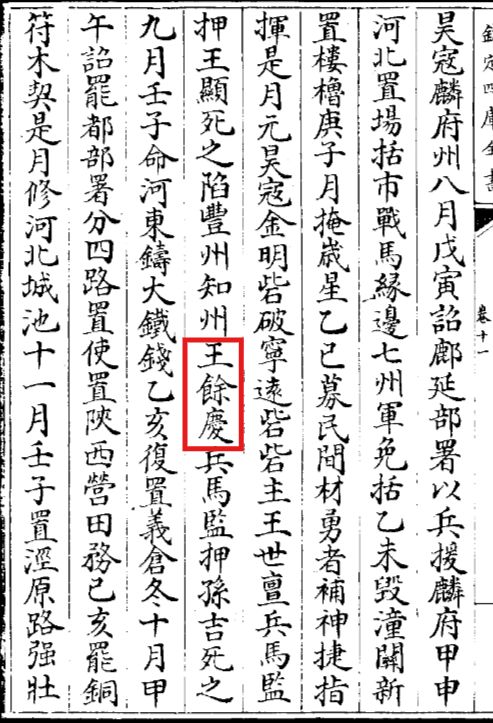 欽定四庫全書
卷十一
昊寇麟府州八月戊寅詔鄜延部署以兵援麟府甲申
河北置場括市戰馬緣邊七州軍免括乙未毀潼關新
置樓櫓庚子月掩歲星乙巳募民間材勇者補神捷指
揮是月元昊寇金明砦破寧遠砦砦主王世亶兵馬監
押王顯死之陷豐州知州王餘慶兵馬監押孫吉死之
九月壬子命河東鑄大鐵錢乙亥復置義倉冬十月甲
午詔罷都部署分四路置使置陝西營田務己亥罷銅
符木契是月修河北城池十一月壬子置涇原路强壯